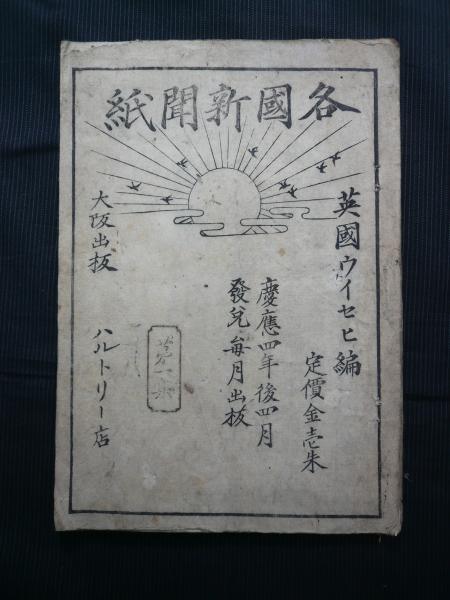 各國新聞紙
英國ウイセヒ編
定價金壱朱
慶應四年後四月
發兌每月出板
第一
大阪出板
ハルトリー店